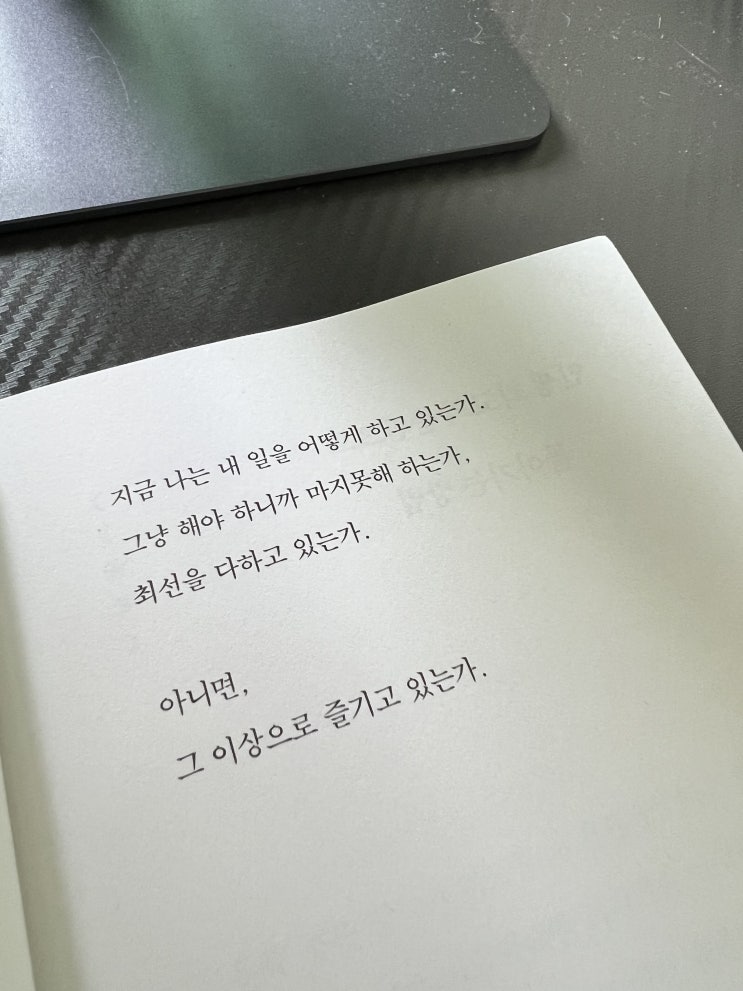 지금 나는 내 일을 어떻게 하고 있는가.
그냥 해야 하니까 마지못해 하는가,
최선을 다하고 있는가.
아니면,
그 이상으로 즐기고 있는가.